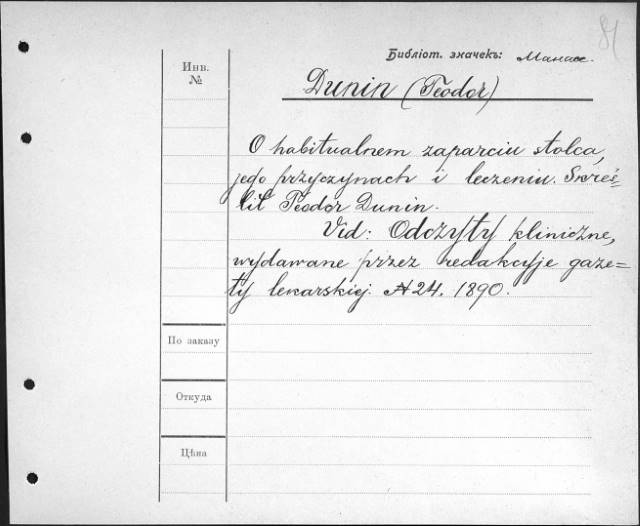 81
Библіот. значекъ: Манасс.
Инв.
№
Dunin (Teodor)
O habitualnem zaparciu stolca,
jego przyczynach i leczeniu. Skreś=
lił Teodor Dunin.
Vid: Odczyty kliniczne,
wydawane przez redakcyje gaze=
ty lekarskiej. № 24. 1890.
По заказу
Откуда
Цѣна